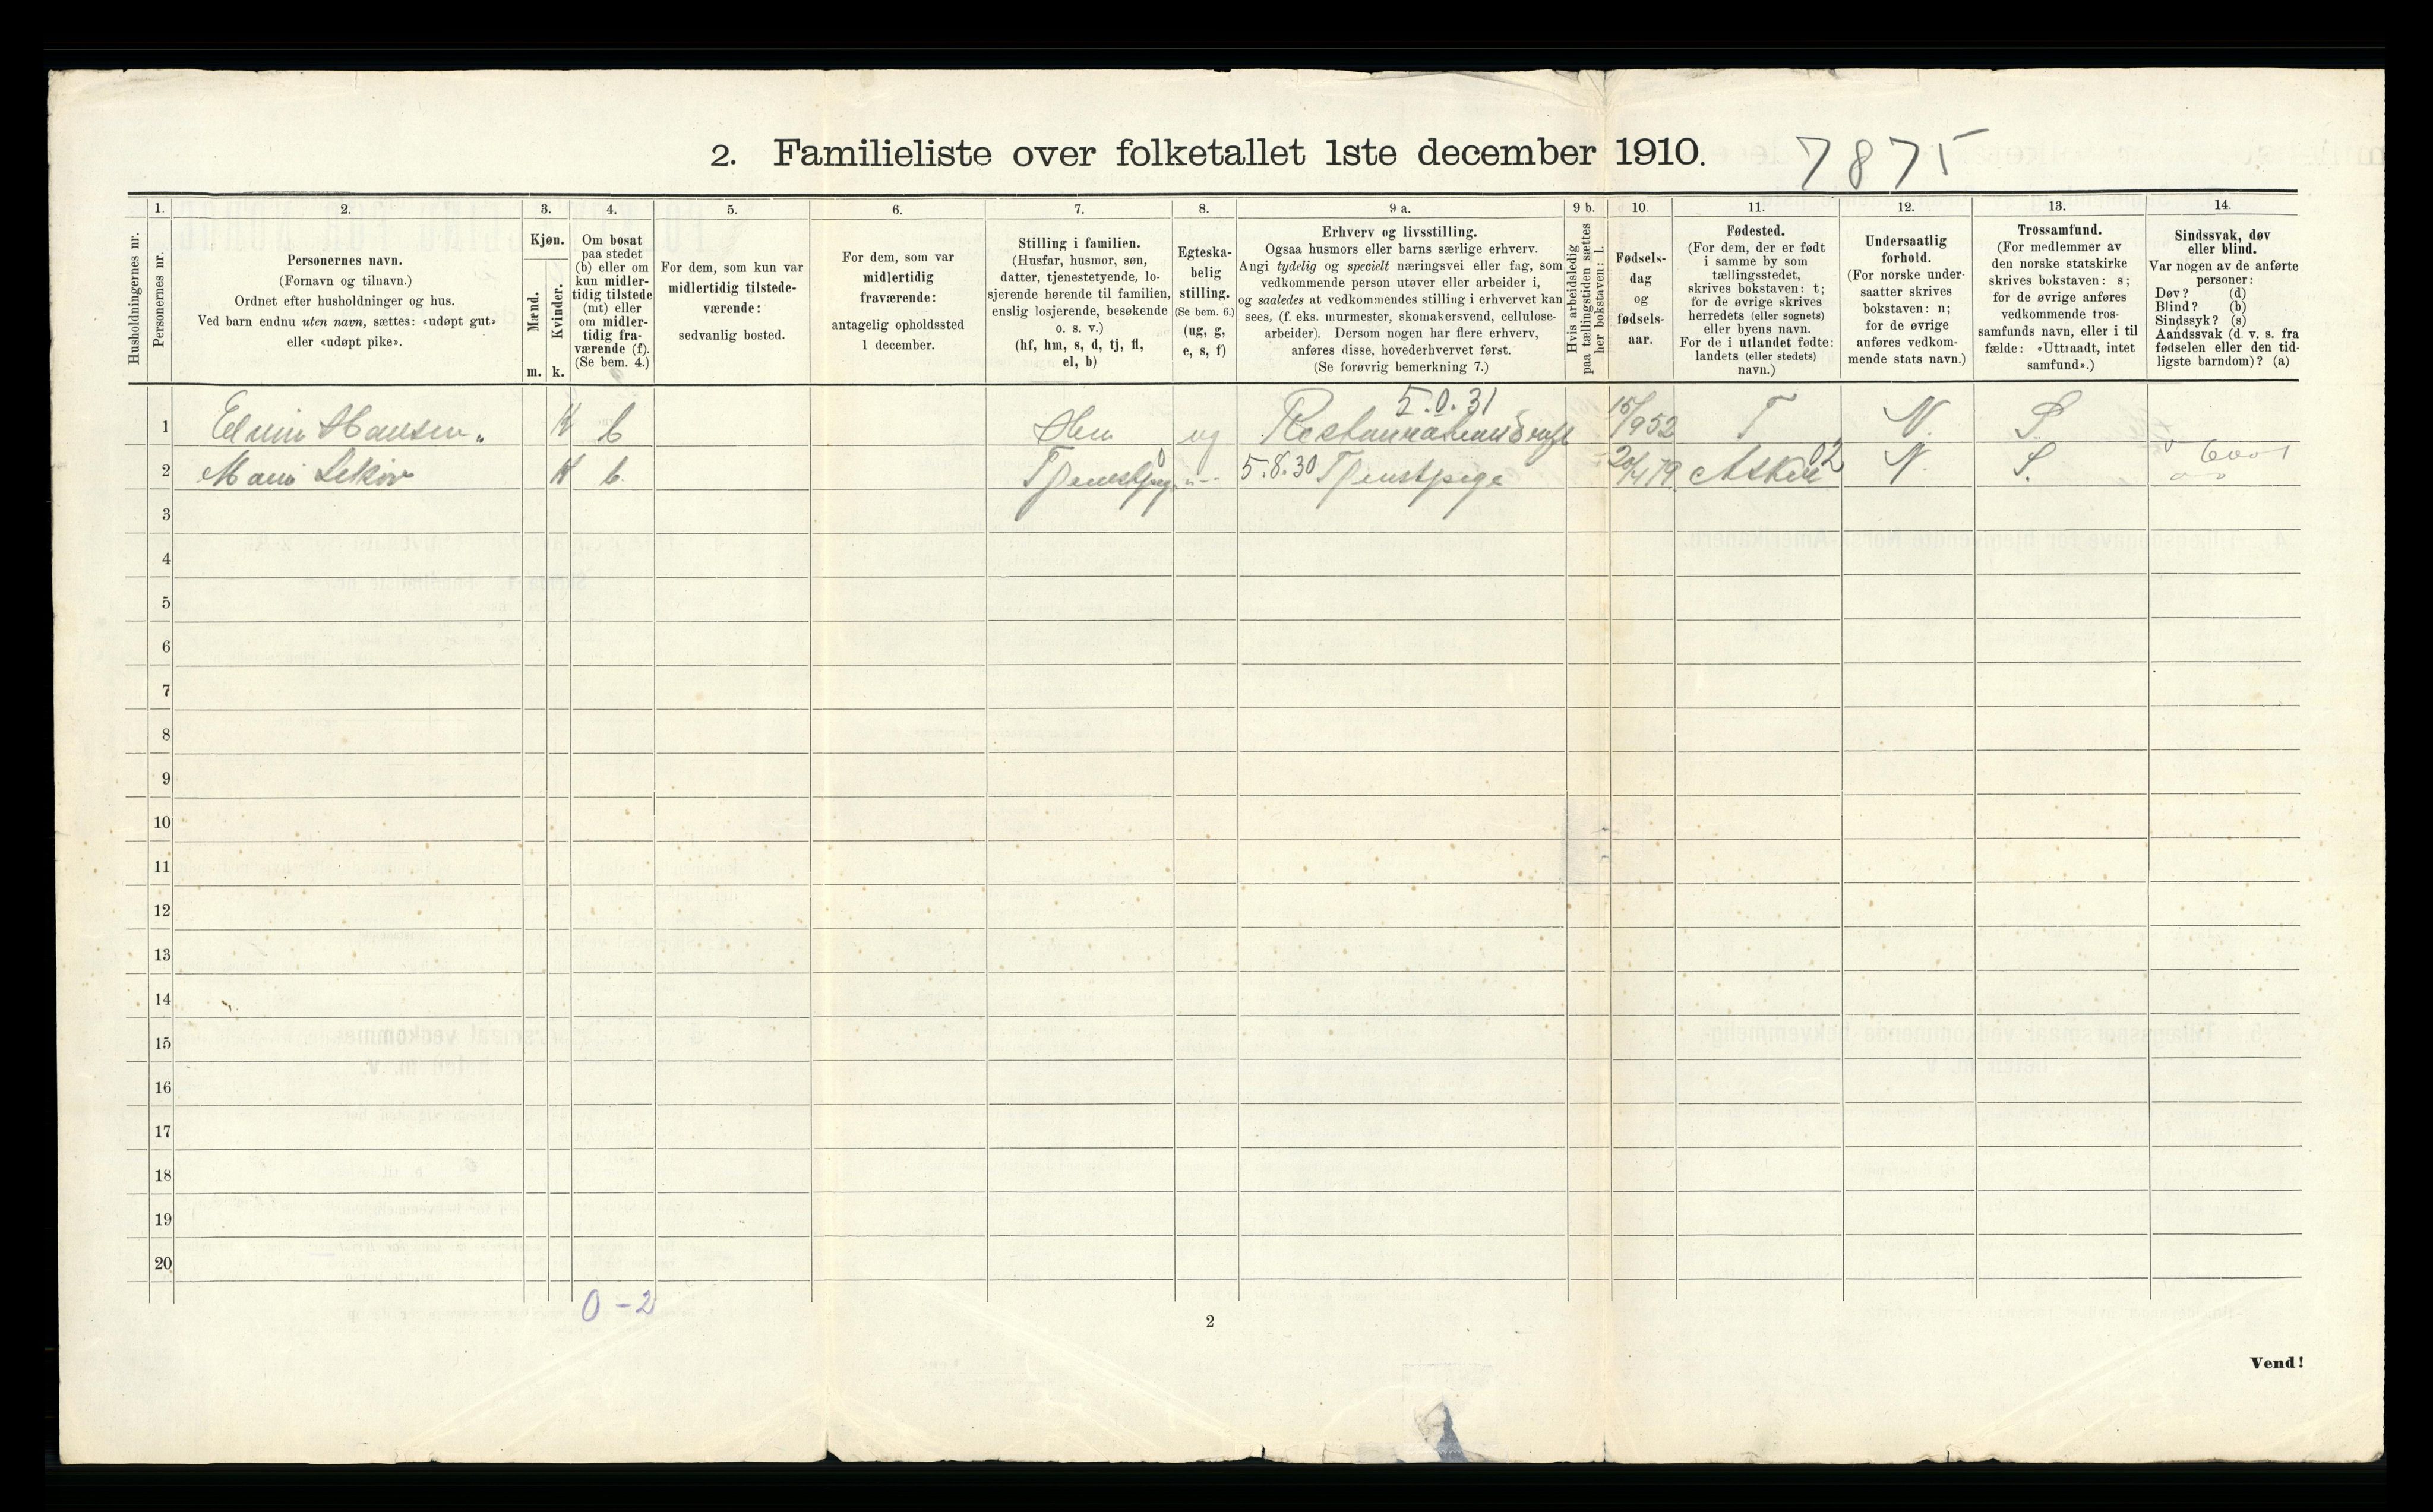 2. Familieliste over folketallet 1ste december 1910. 7875
Husholdningernes nr.
1.
Personernes nr.
2.
Personernes navn.
(Fornavn og tilnavn.)
Ordnet efter husholdninger og hus.
Ved barn endnu uten navn, sættes: «udøpt gut»
eller «udøpt pike».
3.
Kjøn.
Mænd.
m.
Kvinder.
k.
4.
Om bosat
paa stedet
(b) eller om
kun midler-
tidig tilstede
(mt) eller
om midler-
tidig fra-
værende (f).
(Se bem. 4.)
5.
For dem, som kun var
midlertidig tilstede-
værende:
sedvanlig bosted.
6.
For dem, som var
midlertidig
fraværende:
antagelig opholdssted
1 december.
7.
Stilling i familien.
(Husfar, husmor, søn,
datter, tjenestetyende, lo-
sjerende hørende til familien,
enslig losjerende, besøkende
o. s. v.)
(hf, hm, s, d, tj, fl,
el, b)
8.
Egteska-
belig
stilling.
(Se bem. 6.)
(ug, g,
e, s, f)
9 a.
Erhverv og livsstilling.
Ogsaa husmors eller barns særlige erhverv.
Angi tydelig og specielt næringsvei eller fag, som
vedkommende person utøver eller arbeider i,
og saaledes at vedkommendes stilling i erhvervet kan
sees, (f. eks. murmester, skomakersvend, cellulose-
arbeider). Dersom nogen har flere erhverv,
anføres disse, hovederhvervet først.
(Se forøvrig bemerkning 7.)
9 b.
Hvis arbeidsledig
paa tællingstiden sættes
her bokstaven: l.
10.
Fødsels-
dag
og
fødsels-
aar.
11.
Fødested.
(For dem, der er født
i samme by som
tællingsstedet,
skrives bokstaven: t;
for de øvrige skrives
herredets (eller sognets)
eller byens navn.
For de i utlandet fødte:
landets (eller stedets)
navn.)
12.
Undersaatlig
forhold.
(For norske under-
saatter skrives
bokstaven: n;
for de øvrige
anføres vedkom-
mende stats navn.)
13.
Trossamfund.
(For medlemmer av
den norske statskirke
skrives bokstaven: s;
for de øvrige anføres
vedkommende tros-
samfunds navn, eller i til
fælde: «Uttraadt, intet
samfund».)
14.
Sindssvak, døv
eller blind.
Var nogen av de anførte
personer:
Døv? (d)
Blind? (b)
Sindssyk? (s)
Aandssvak (d. v. s. fra
fødselen eller den tid-
ligste barndom)? (a)
5.0.31
1 Hansen K b ug 15/9 52 T N. S.
2 K b. 5.8.30 Tjenstpige 20/4 79 Asker 02 N. S.
3
4
5
6
7
8
9
10
11
12
13
14
15
16
17
18
19
20
0-2
2
Vend!